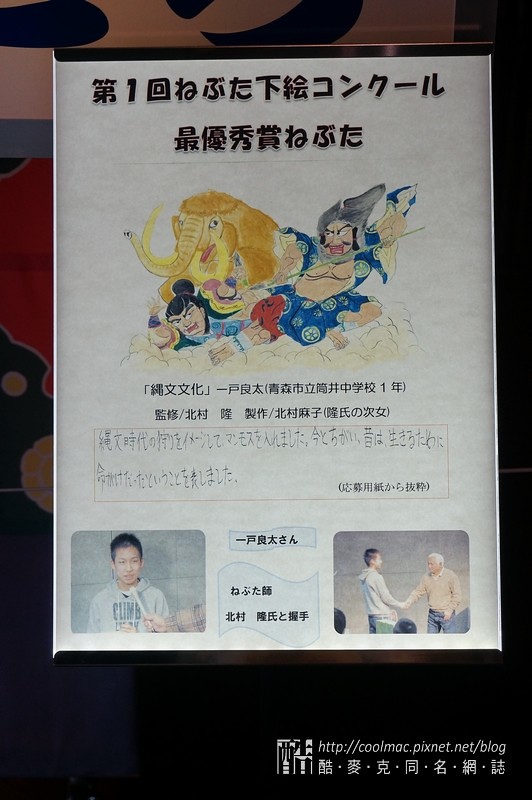 第1回ねぶた下絵コンクール
最優秀賞ねぶた
「縄文文化」一戸良太(青森市立筒井中学校1年)
監修/北村　隆　製作/北村麻子(隆氏の次女)
縄文時代の狩りをイメージしてマンモスを入れました。今とちがい、昔は、生きるために
命がけだったということを表しました。
(応募用紙から抜粋)
一戸良太さん
ねぶた師
北村　隆氏と握手
CLIMB
酷 http://coolmac.pixnet.net/blog
酷・麥・克・同・名・網・誌